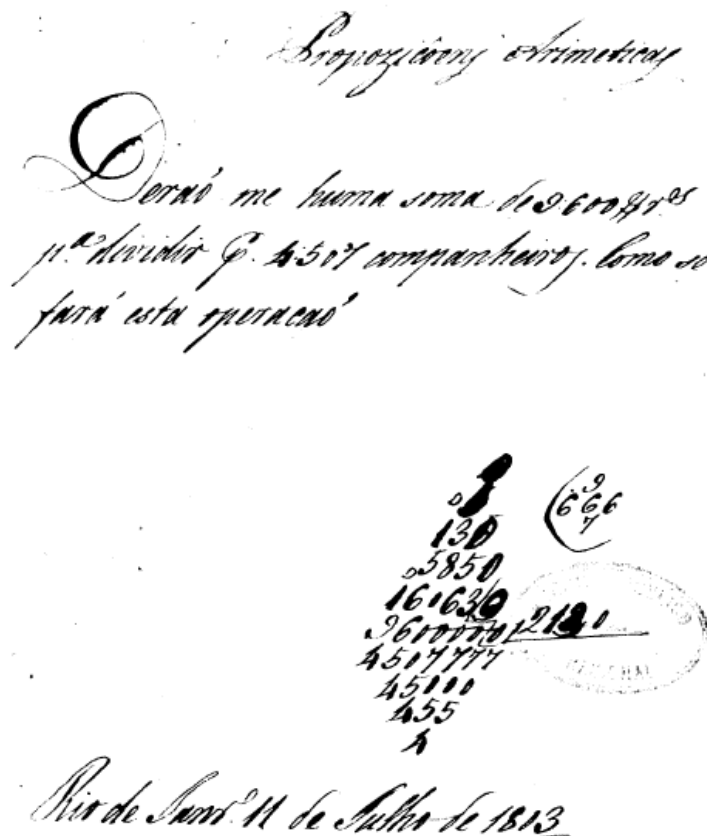 Propoziçoens Arimeticas
Deraõ me huma soma de 9.600$r.es
p.a dividir P. 4.507 companheiros. Como se
fará esta operacaõ
130
5850
16063
9
6 6 6
7
4507777
45000
455
4
Rio de Janr.o 11 de Julho de 1803